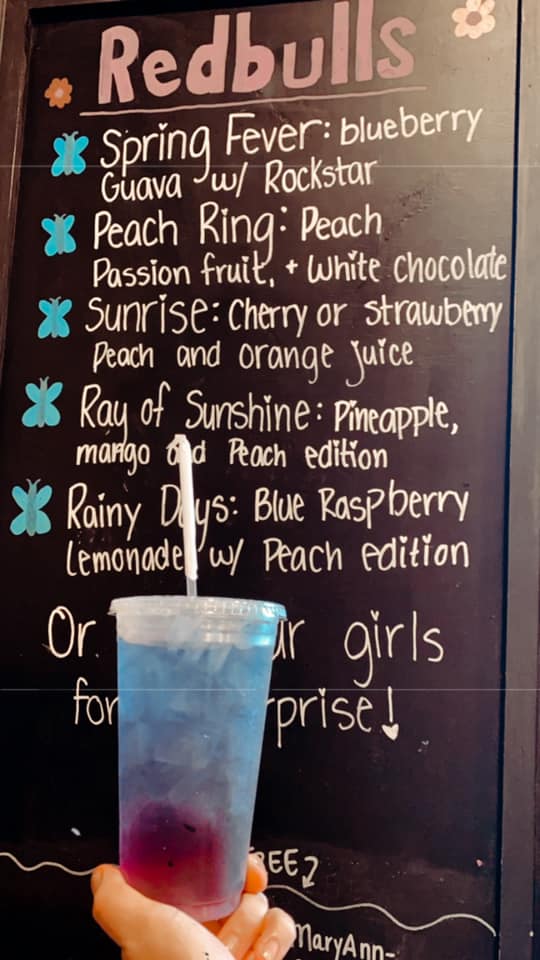 Redbulls
Spring Fever: blueberry
Guava w/ Rockstar
Peach Ring: Peach
Passion fruit, + White chocolate
Sunrise: Cherry or strawberry
Peach and orange juice
Ray of Sunshine: Pineapple,
mango Peach edition
Rainy Blue Raspberry
Lemonade w/ Peach edition
Or girls
for
MaryAnn-